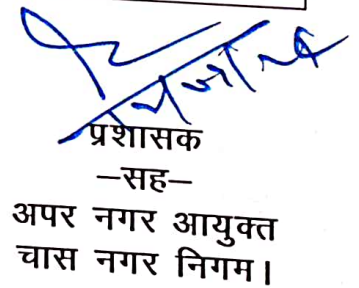 प्रशासक
–सह–
अपर नगर आयुक्त
चास नगर निगम।